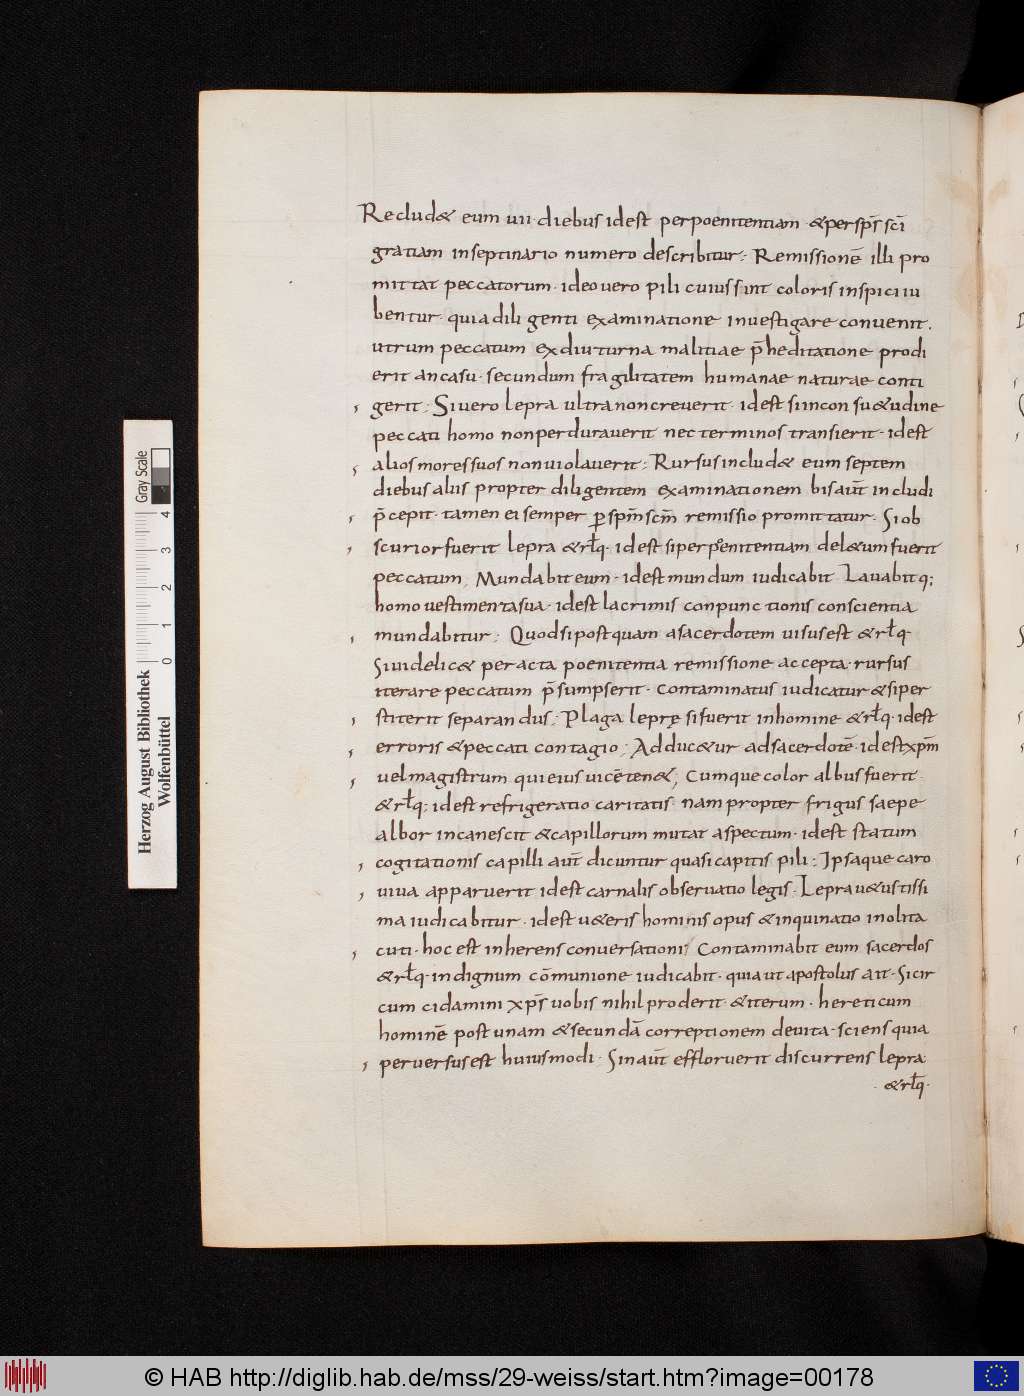 Recludæ eum uii·diebus idest perpoenitentiam·&persp̄s sc̄i
gratiam inseptinario numero describitur: Remissionē illi pro
mittat peccatorum·ideo uero pili cuius sint coloris inspici iu
bentur·quia diligenti examinatione inuestigare conuenit.
utrum peccatum exdiuturna malitiae p̄heditatione prodi
erit an casu·secundum fragilitatem humanae naturae conti
gerit: Si uero lepra ultra non creuerit·idest si inconsu&udine
peccati homo non perdurauerit nec terminos transierit·idest
alios mores suos non uiolauerit: Rursus includ& eum septem
diebus aliis propter diligentem examinationem bis aut̄ includi
p̄cepit·tamen ei semper ꝑ spm̄ scm̄ remissio promittatur·Si ob
scurior fuerit lepra &rlq̄·idest si perpoenitentiam del&um fuerit
peccatum; Mundabit eum·idest mundum iudicabit Lauabitq;
homo uestimenta sua·idest lacrimis conpunctionis conscientia
mundabitur: Quod si postquam a sacerdotem uisus est &rlq̄
Si uidelic& peracta poenitentia remissione accepta·rursus
iterare peccatum p̄sumpserit·contaminatus iudicatur & si per
stiterit separandus; Plaga leprę si fuerit in homine &rlq̄·idest
erroris & peccati contagio; Adduc&ur ad sacerdotē·idest xpm̄
uel magistrum qui eius uicē ten&; Cumque color albus fuerit·
&rlq̄: idest refrigeratio caritatis·nam propter frigus saepe
albor incanescit & capillorum mutat aspectum·idest statum
cogitationis capilli aut̄ dicuntur quasi capitis pili: Ipsaque caro
uiua apparuerit idest carnalis obseruatio legis·Lepra u&ustissi
ma iudicabitur·idest u&eris hominis opus & inquinatio inolita
cuti·hoc est inherens conuersationi; Contaminabit eum sacerdos
&rlq̄·indignum cōmunione iudicabit·quia ut apostolus ait·Si cir
cumcidamini xp̄s uobis nihil proderit·& iterum·hereticum
hominē post unam & secundā correptionem deuita·sciens quia
peruersus est huiusmodi·Sin aut̄ effloruerit discurrens lepra
·&rlq̄·
Herzog August Bibliothek
Wolfenbüttel
Gray Scale
0 1 2 3 4
© HAB http://diglib.hab.de/mss/29-weiss/start.htm?image=00178